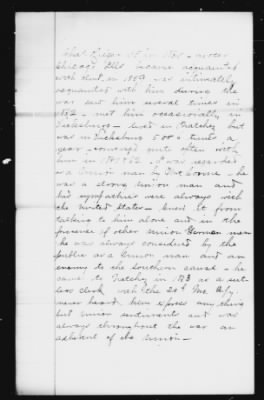 became acquainted
with him in 1859 was intimately
acquainted with him during the
war saw him several times in
1862 - met him occasionally in
Vicksburg - lived in Natchez but
was in Vicksburg 5 or 6 times a
year - conversed quite often with
him in 1862. He was regarded
as a Union man by
was a strong Union man and
his sympathies were always with
the United States - knew it from
talking to him alone and in the
presence of other Union men
he was always considered by the
public as a Union man and an
enemy to the Southern cause - he
came to Natchez in 1863 as a sut-
lers clerk with the 29th
never heard him express anything
but Union sentiments and was
always throughout the war an
adherent of the Union -